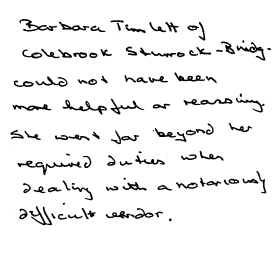 Barbara Timlett of
Colebrook Sturrock-Bridg-
could not have been
more helpful or reassuring.
She went far beyond her
required duties when
dealing with a notoriously
difficult vendor.